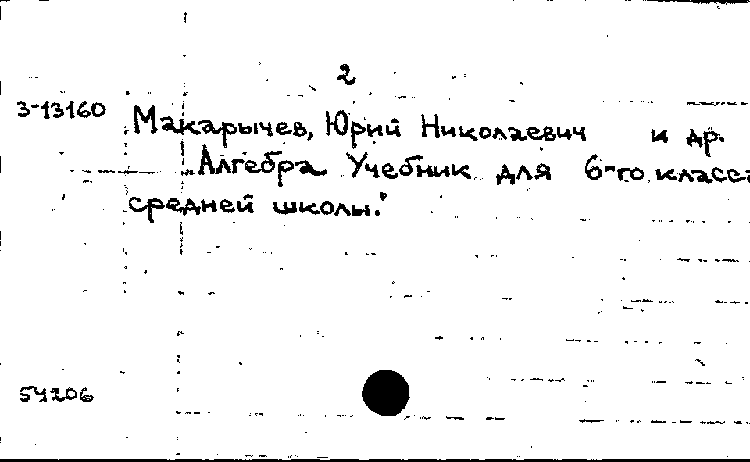 2
3-13160 Макарычев, Юрий Николаевич и др.
Алгебра Учебник для 6-го класса
средней школы.
54206